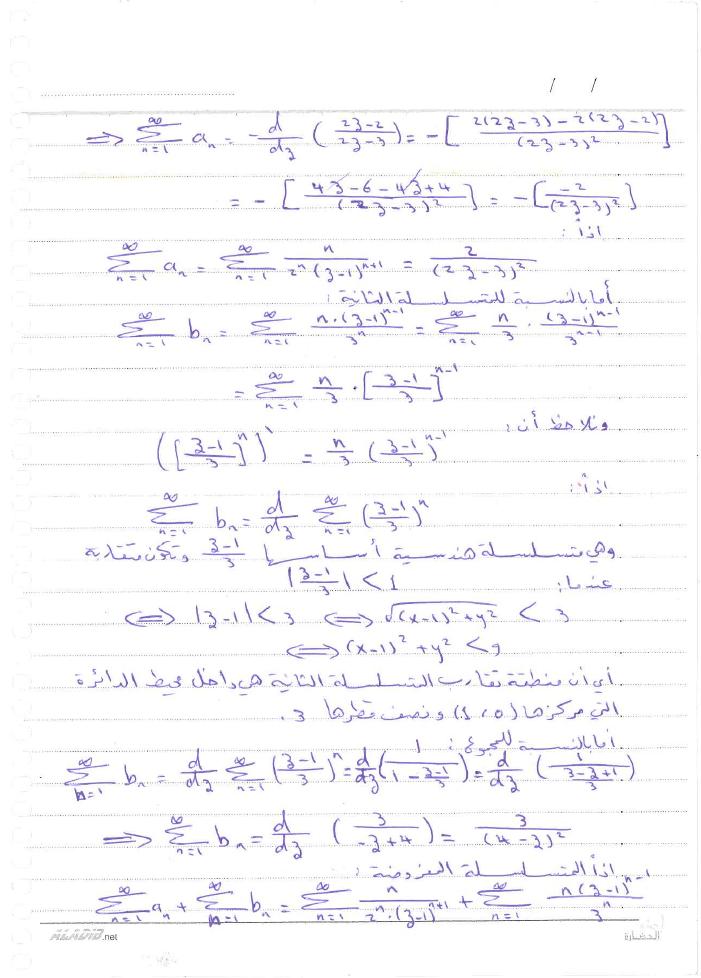 / /
⇒ ∑_{n=1}^{∞} a_n = - d/dz ( (2z-2)/(2z-3) ) = - [ (2(2z-3) - 2(2z-2)) / (2z-3)² ]
= - [ (4z-6-4z+4) / (2z-3)² ] = - [ -2 / (2z-3)² ]
اذاً :
∑_{n=1}^{∞} a_n = ∑_{n=1}^{∞} n / (2^n (z-1)^{n+1}) = 2 / (2z-3)²
أما بالنسبة للمتسلسلة الثانية :
∑_{n=1}^{∞} b_n = ∑_{n=1}^{∞} n·(z-1)^{n-1} / 3^n = ∑_{n=1}^{∞} n/3 · (z-1)^{n-1} / 3^{n-1}
= ∑_{n=1}^{∞} n/3 · [ (z-1)/3 ]^{n-1}
ونلاحظ أن :
( [ (z-1)/3 ]^n )` = n/3 ( (z-1)/3 )^{n-1}
اذاً :
∑_{n=1}^{∞} b_n = d/dz ∑_{n=1}^{∞} ( (z-1)/3 )^n
وهي متسلسلة هندسية أساسها (z-1)/3 وتكون متقاربة
عندما : | (z-1)/3 | < 1
⇔ |z-1| < 3 ⇔ √((x-1)² + y²) < 3
⇔ (x-1)² + y² < 9
أي أن منطقة تقارب المتسلسلة الثانية هي داخل محيط الدائرة
التي مركزها (1,0) ونصف قطرها 3.
أما بالنسبة للمجموع :
∑_{n=1}^{∞} b_n = d/dz ∑_{n=1}^{∞} ( (z-1)/3 )^n = d/dz ( 1 / (1 - (z-1)/3) ) = d/dz ( 1 / ((3-z+1)/3) )
⇒ ∑_{n=1}^{∞} b_n = d/dz ( 3 / (-z+4) ) = 3 / (4-z)²
اذاً المتسلسلة المفروضة :
∑_{n=1}^{∞} a_n + ∑_{n=1}^{∞} b_n = ∑_{n=1}^{∞} n / (2^n·(z-1)^{n+1}) + ∑_{n=1}^{∞} n(z-1)^{n-1} / 3^n
.net
الحضارة